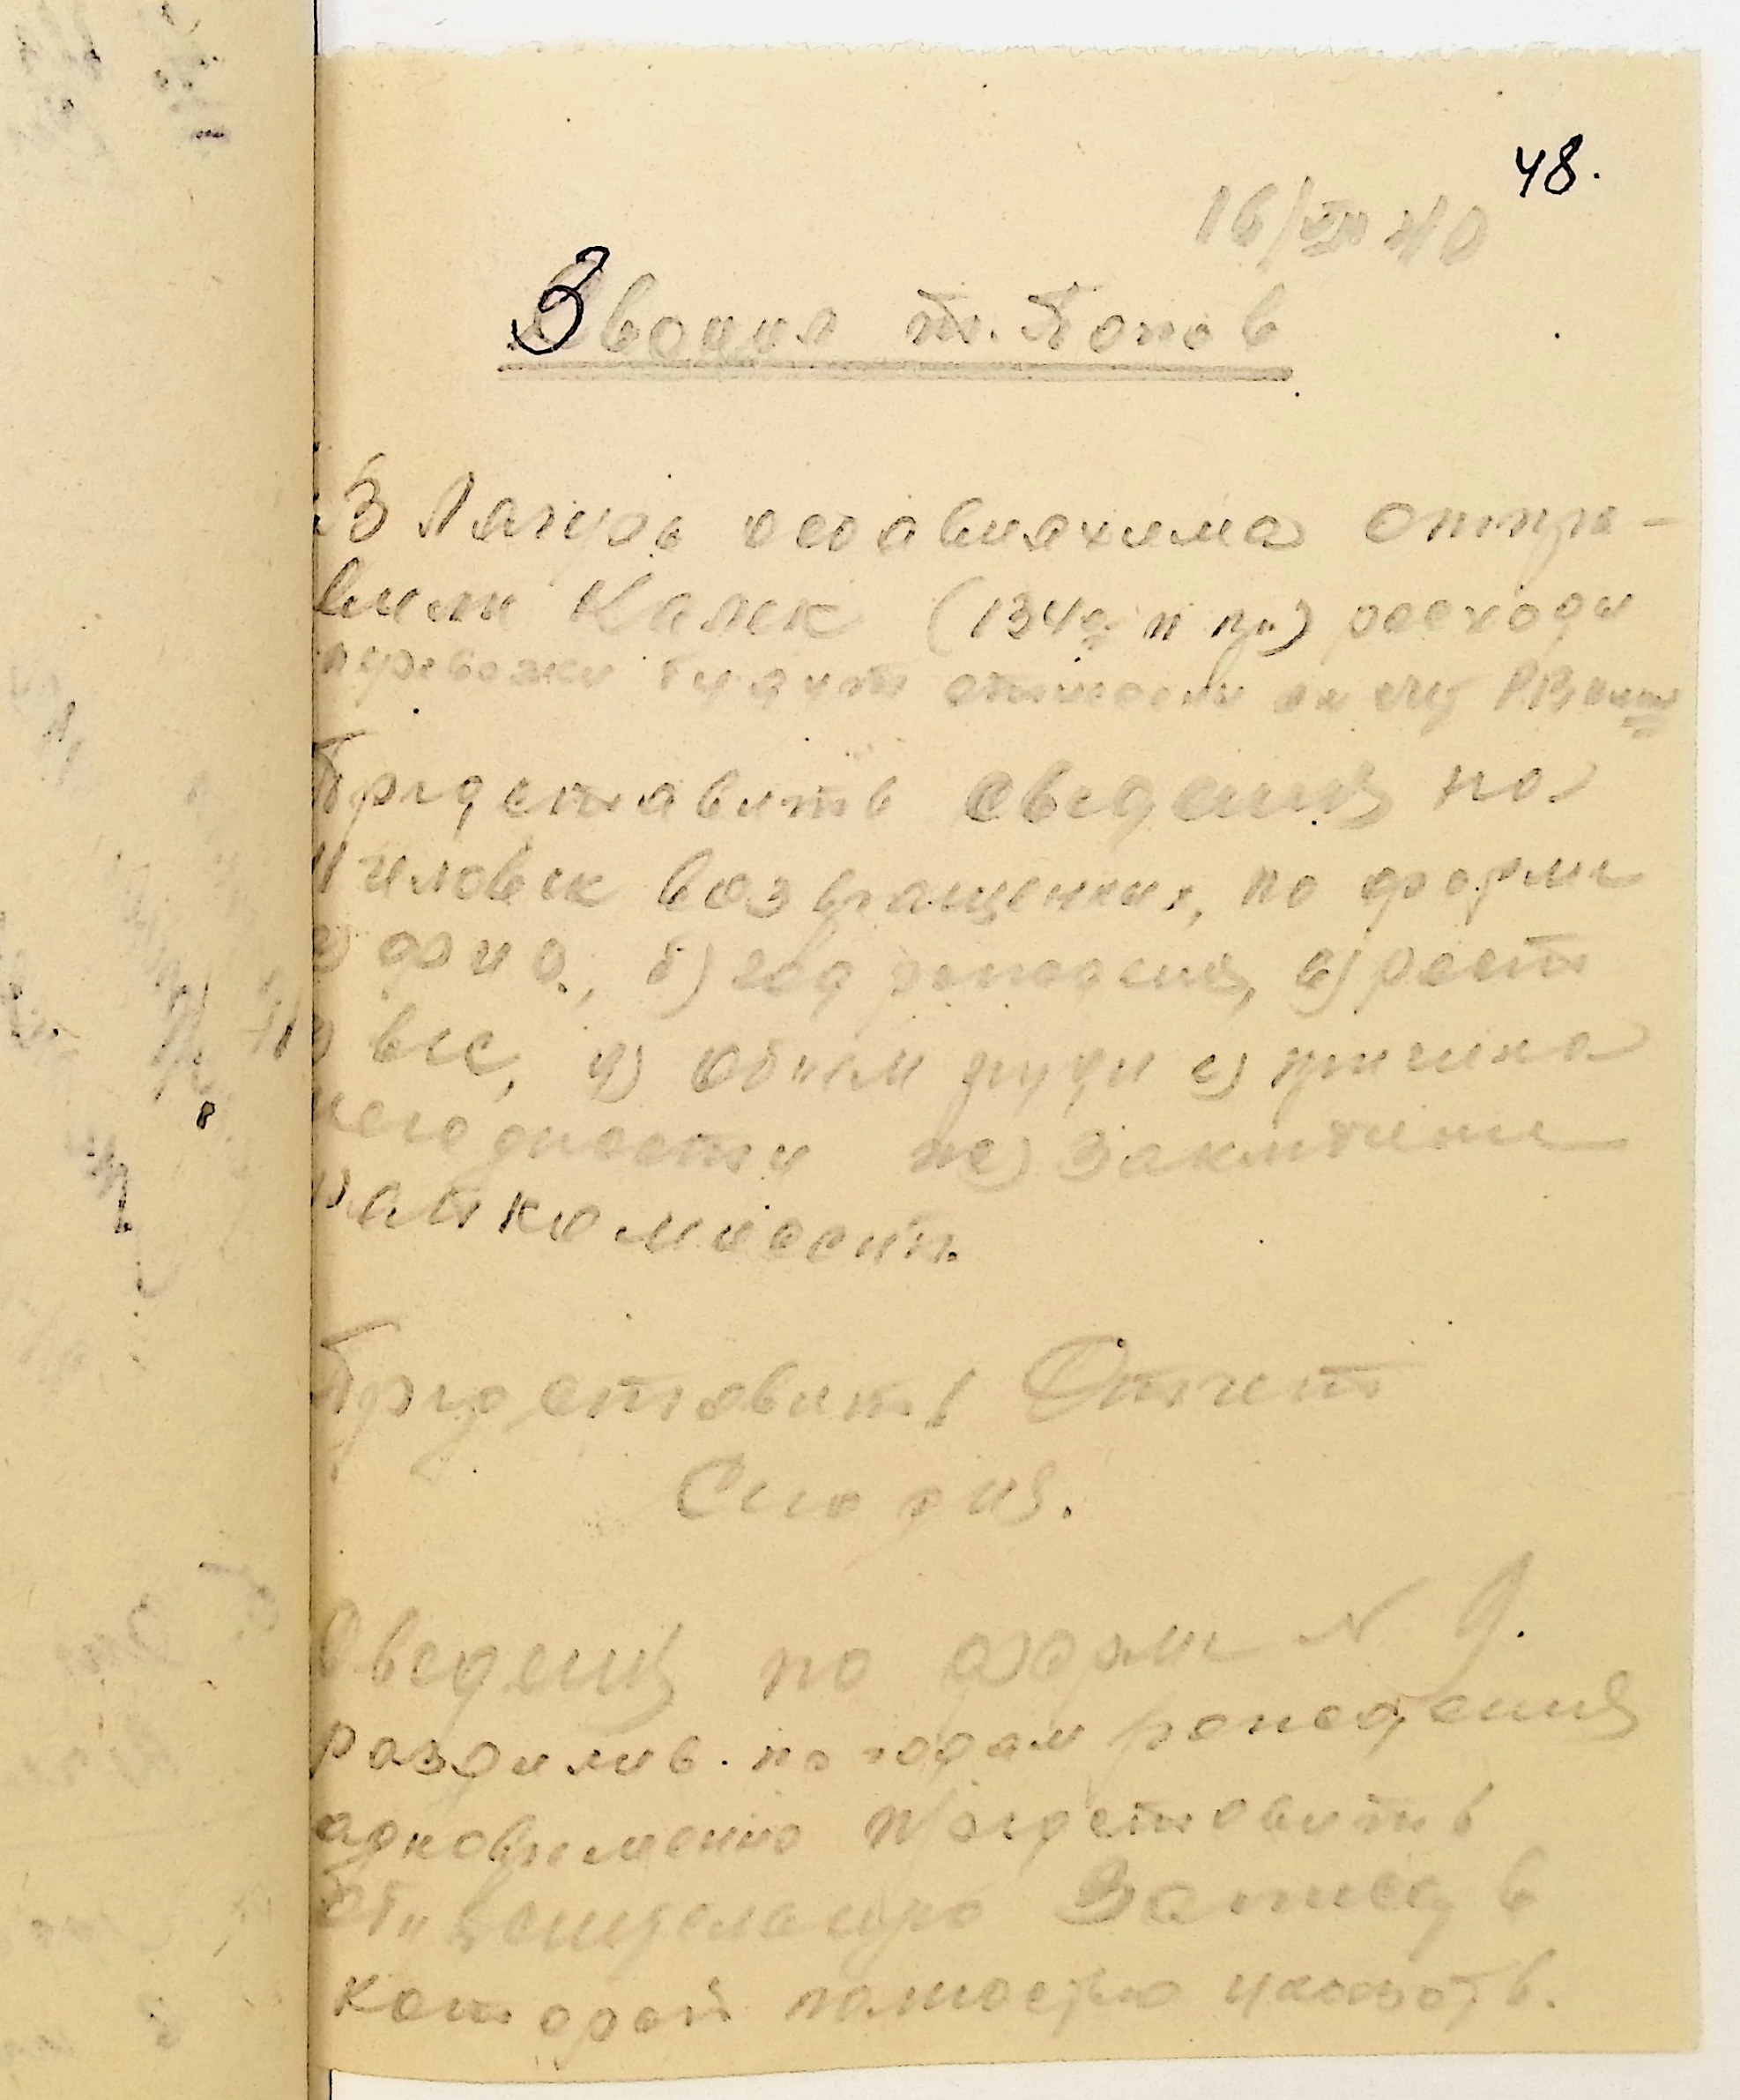 48.
16/VIII 40
Звонил т. Попов
В Лагерь осоавиахима отпра-
вили Калек (134 и пр.) расходы
перевозки будут отнесены на счет РВ
Представить сведения на
11 человек возвращенных, по форме
а) ф и о., б) год рождения, в) рост
г) вес, д) объем груди е) причина
негодности ж) Заключение
райкомиссии.
Представить Отчет
Сегодня.
Сведения по форме N 9.
разделив. по годам рождения
одновременно представить
записку в
которой полностью указать.